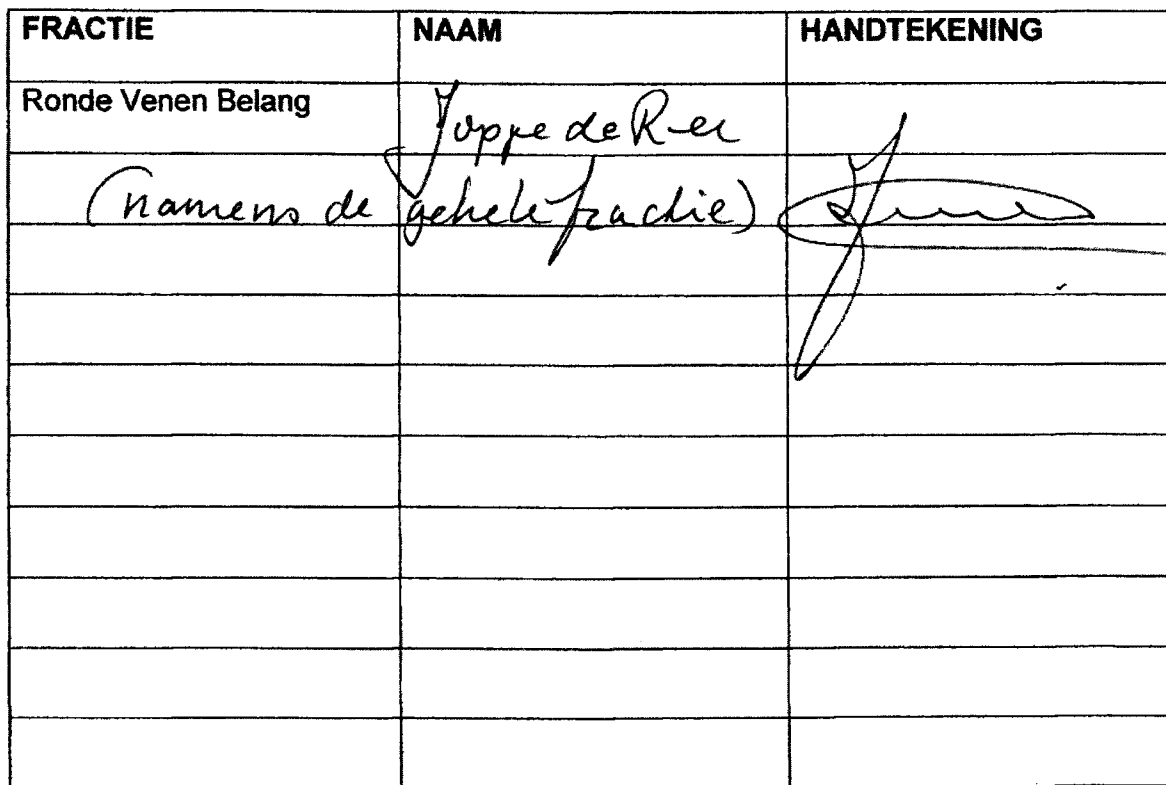 FRACTIE NAAM HANDTEKENING
Ronde Venen Belang Joppe de Ree
(namens de gehele fractie)